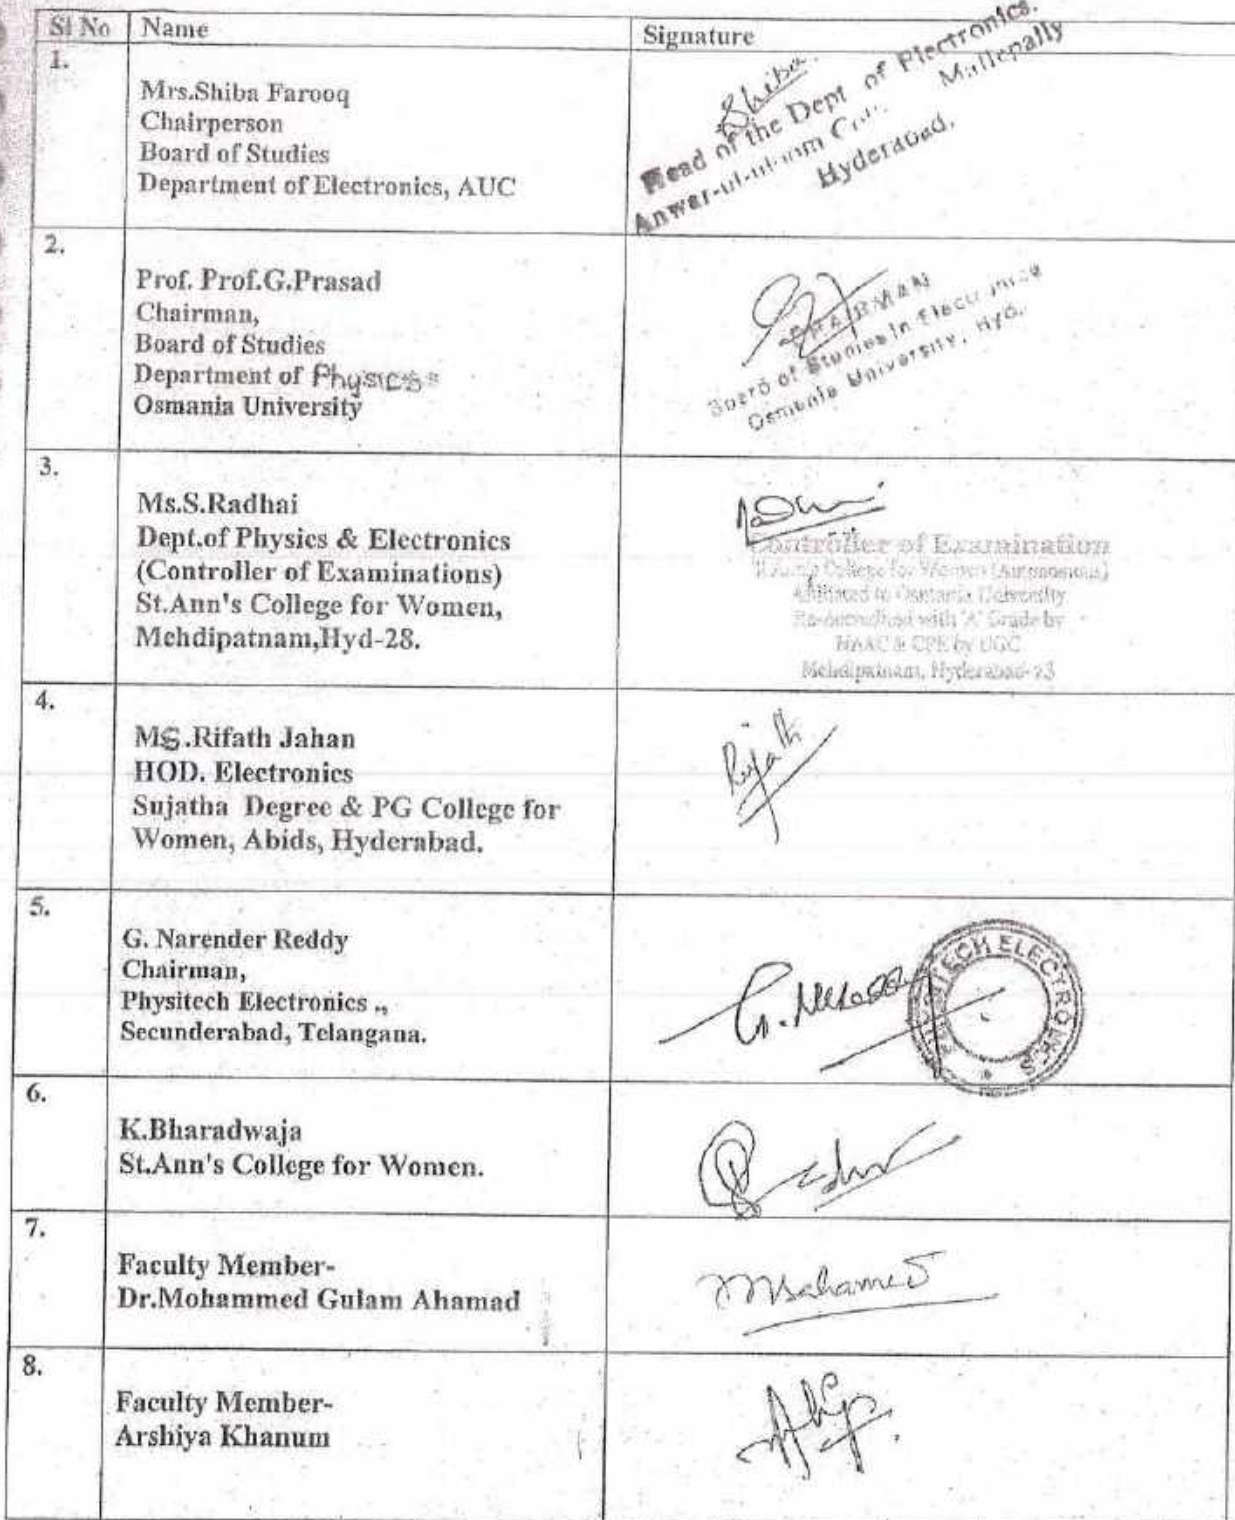 Sl No Name Signature
1.
Mrs.Shiba Farooq
Chairperson
Board of Studies
Department of Electronics, AUC
Shiba
Head of the Dept of Electronics.
Anwar-ul-uloom Mallepally
Hyderabad.
2.
Prof. Prof.G.Prasad
Chairman,
Board of Studies
Department of Physics
Osmania University
CHAIRMAN
Board of Studies in Electronics
Osmania University, Hyd.
3.
Ms.S.Radhai
Dept.of Physics & Electronics
(Controller of Examinations)
St.Ann's College for Women,
Mehdipatnam,Hyd-28.
Controller of Examination
St.Ann's College for Women (Autonomous)
Affiliated to Osmania University
Re-accredited with 'A' Grade by
NAAC & CPE by UGC
Mehdipatnam, Hyderabad-28
4.
MS.Rifath Jahan
HOD. Electronics
Sujatha Degree & PG College for
Women, Abids, Hyderabad.
Rifath
5.
G. Narender Reddy
Chairman,
Physitech Electronics .,
Secunderabad, Telangana.
PHYSITECH ELECTRONICS
6.
K.Bharadwaja
St.Ann's College for Women.
7.
Faculty Member-
Dr.Mohammed Gulam Ahamad
8.
Faculty Member-
Arshiya Khanum